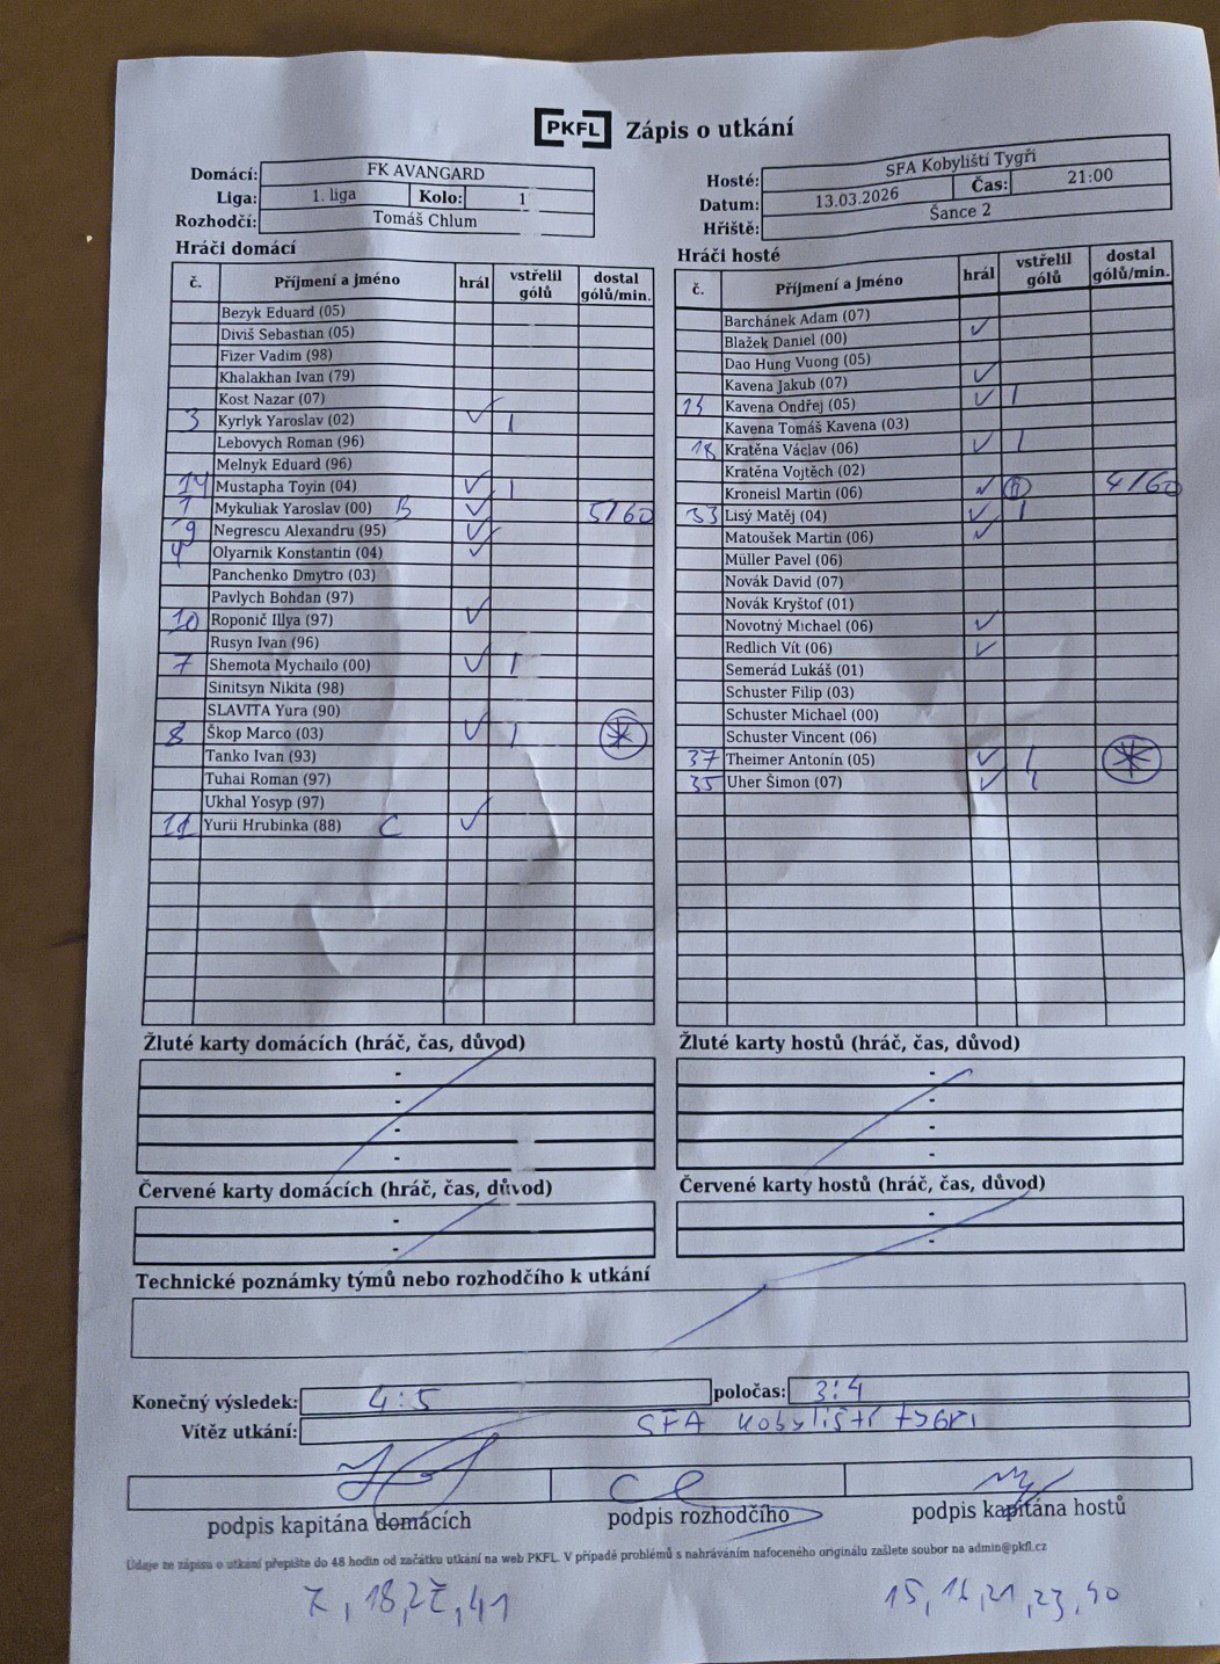 PKFL Zápis o utkání
Domácí: FK AVANGARD
Liga: 1. liga Kolo: 1
Rozhodčí: Tomáš Chlum
Hosté: SFA Kobyliští Tygři
Datum: 13.03.2026 Čas: 21:00
Hřiště: Šance 2
Hráči domácí
č. Příjmení a jméno hrál vstřelil gólů dostal gólů/min.
Bezyk Eduard (05)
Diviš Sebastian (05)
Fizer Vadim (98)
Khalakhan Ivan (79)
Kost Nazar (07)
3 Kyrlyk Yaroslav (02) ✓ 1
Lebovych Roman (96)
Melnyk Eduard (96)
14 Mustapha Toyin (04) ✓ 1
1 Mykuliak Yaroslav (00) B ✓ 5/60
9 Negrescu Alexandru (95) ✓
4 Olyarnik Konstantin (04) ✓
Panchenko Dmytro (03)
Pavlych Bohdan (97)
10 Roponič Illya (97) ✓
Rusyn Ivan (96)
7 Shemota Mychailo (00) ✓ 1
Sinitsyn Nikita (98)
SLAVITA Yura (90)
8 Škop Marco (03) ✓ 1 *
Tanko Ivan (93)
Tuhai Roman (97)
Ukhal Yosyp (97)
11 Yurii Hrubinka (88) C ✓
Hráči hosté
č. Příjmení a jméno hrál vstřelil gólů dostal gólů/min.
Barchánek Adam (07)
Blažek Daniel (00) ✓
Dao Hung Vuong (05)
Kavena Jakub (07) ✓
Kavena Ondřej (05) ✓ 1
Kavena Tomáš Kavena (03)
18 Kratěna Václav (06) ✓ 1
Kratěna Vojtěch (02)
Kroneisl Martin (06) ✓ 4/60
33 Lisý Matěj (04) ✓ 1
Matoušek Martin (06) ✓
Müller Pavel (06)
Novák David (07)
Novák Kryštof (01)
Novotný Michael (06) ✓
Redlich Vít (06) ✓
Semerád Lukáš (01)
Schuster Filip (03)
Schuster Michael (00)
Schuster Vincent (06)
37 Theimer Antonín (05) ✓ 1 *
35 Uher Šimon (07) ✓ 1
Žluté karty domácích (hráč, čas, důvod)
-
-
-
-
Žluté karty hostů (hráč, čas, důvod)
-
-
-
-
Červené karty domácích (hráč, čas, důvod)
-
-
Červené karty hostů (hráč, čas, důvod)
-
-
Technické poznámky týmů nebo rozhodčího k utkání
Konečný výsledek: 4:5 poločas: 3:4
Vítěz utkání: SFA Kobylištί tygři
podpis kapitána domácích podpis rozhodčího podpis kapitána hostů
Údaje ze zápisu o utkání přepište do 48 hodin od začátku utkání na web PKFL. V případě problémů s nahráváním nafoceného originálu zašlete soubor na admin@pkfl.cz
7, 18, 27, 41
15, 16, 21, 23, 40